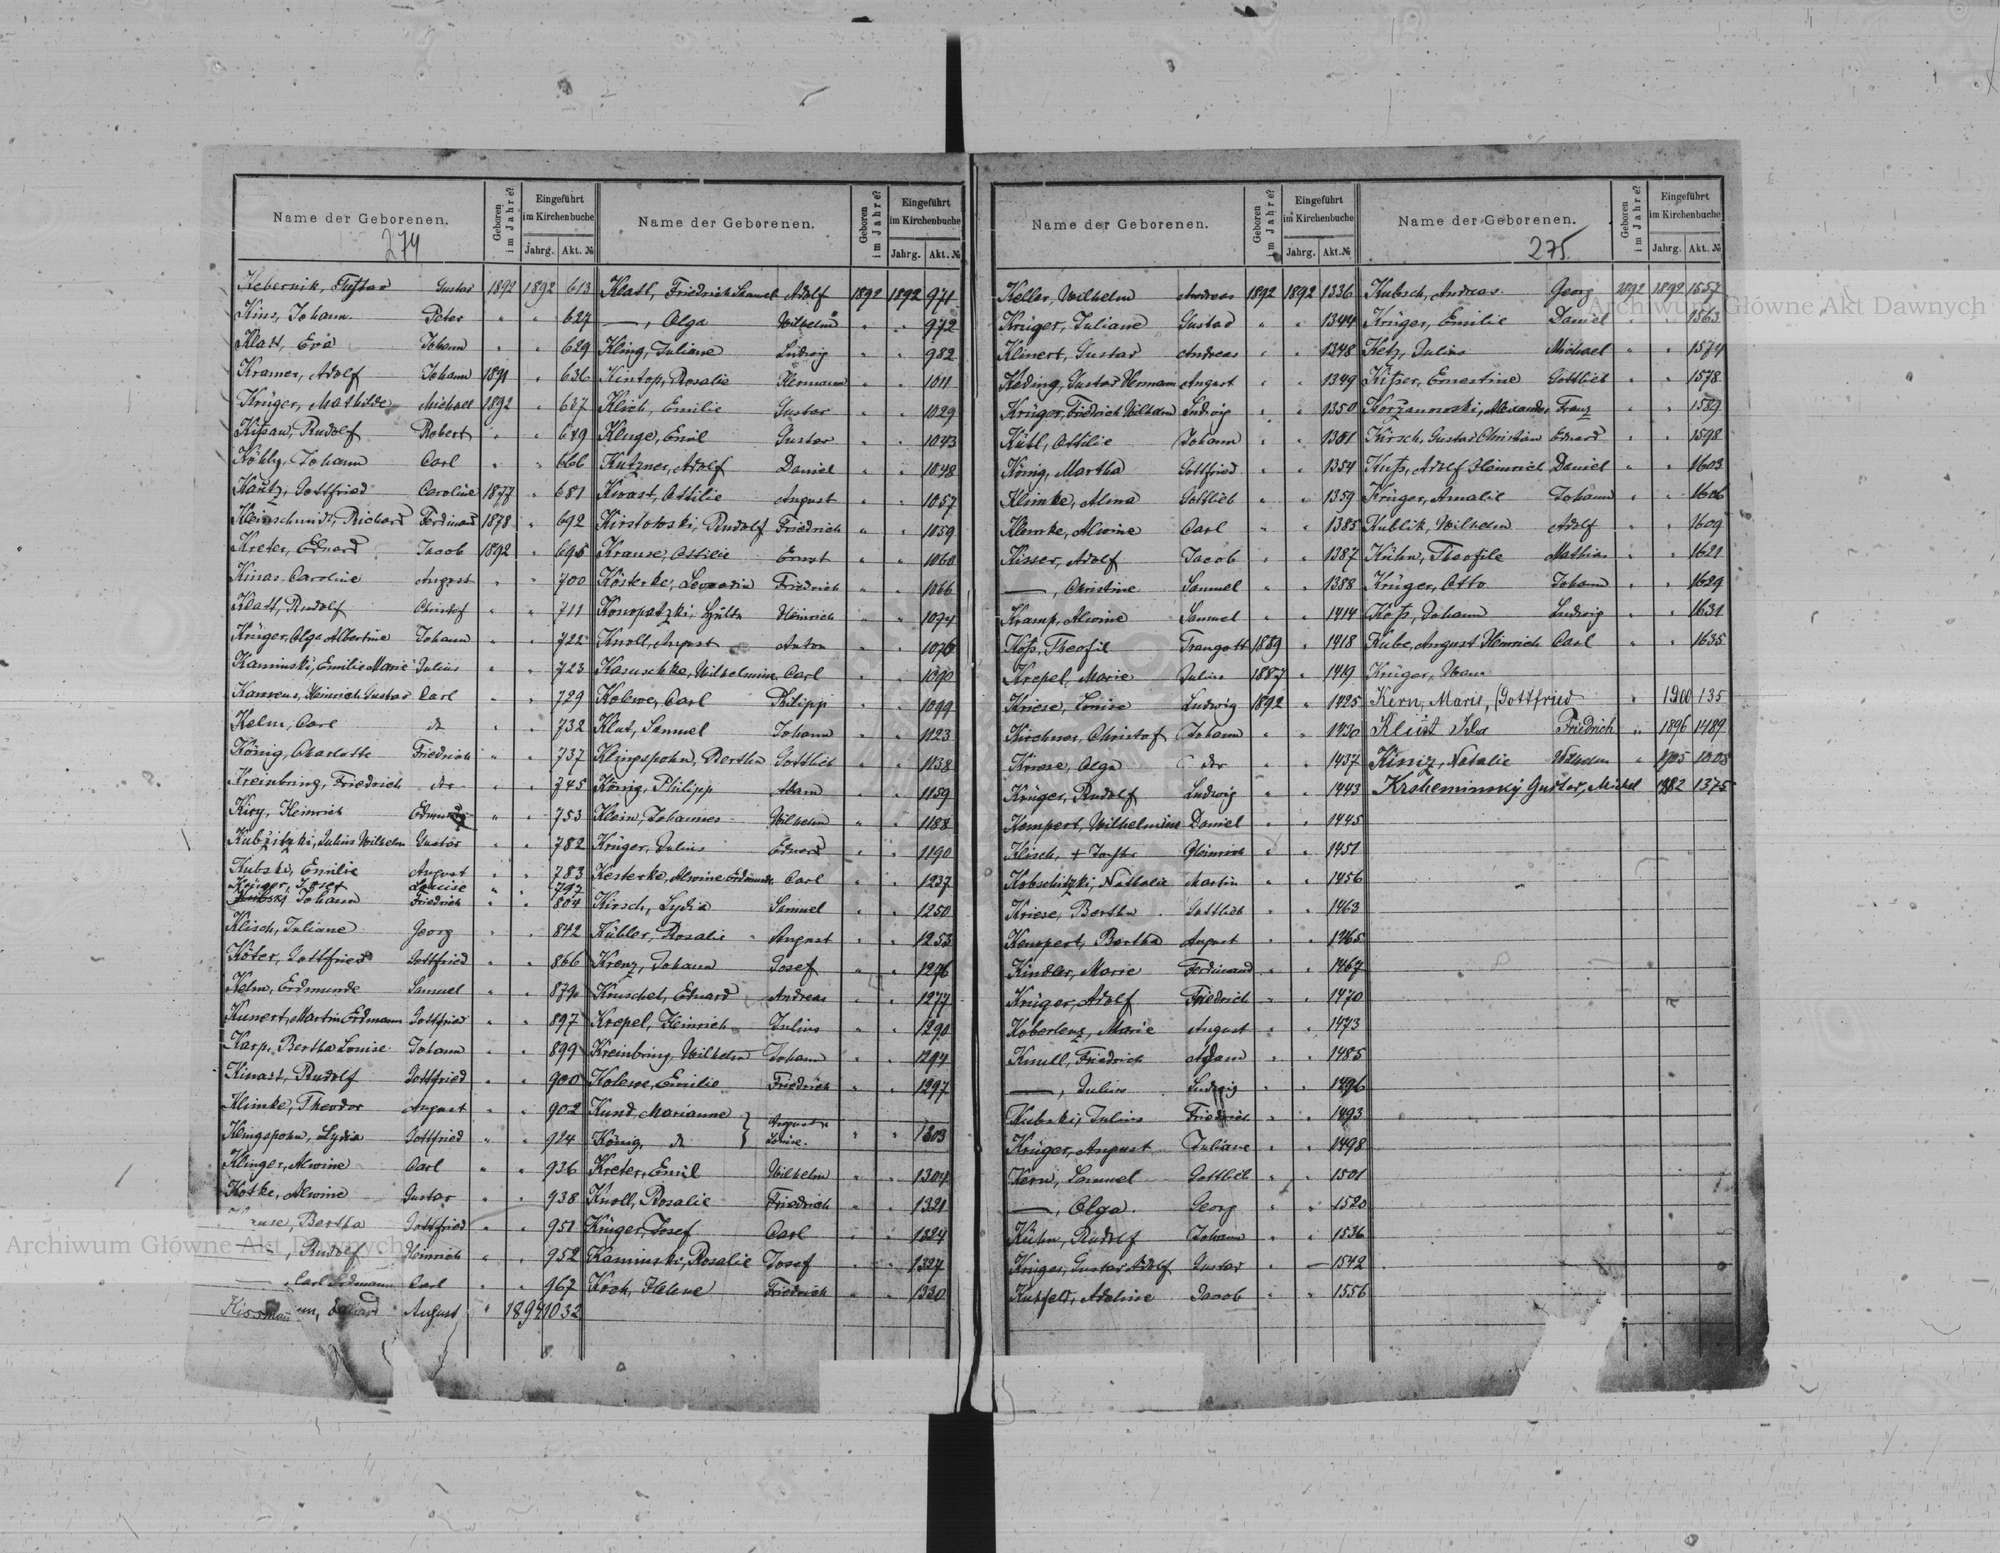 Name der Geborenen. Geboren im Jahre? Eingeführt im Kirchenbuche Jahrg. Akt. №
274
Kebernik, Gustav Gustav 1892 1892 613
Kins, Johann Peter " " 627
Klatt, Eva Johann " " 629
Kramer, Adolf Johann 1891 " 636
Krüger, Mathilde Michael 1892 " 637
Kißau, Rudolf Robert " " 649
Köhly, Johann Carl " " 666
Kautz, Gottfried Caroline 1877 " 681
Kleinschmidt, Richard Ferdinand 1878 " 692
Kreter, Eduard Jacob 1892 " 695
Kinas, Caroline August " " 700
Klatt, Rudolf Christof " " 711
Krüger, Olga Albertine Johann " " 722
Kaminski, Emilie Marie Julius " " 723
Heinrich Gustav Carl " " 729
Kelm, Carl dr " " 732
König, Charlotte Friedrich " " 737
Kreinbring, Friedrich dr " " 745
Heinrich " " 753
Kubzitzki, Julius Wilhelm Gustav " " 782
Kubski, Emilie August " " 783
Krüger, Josef Louise " " 797
Johann Friedrich " " 804
Klisch, Juliane Georg " " 842
Köter, Gottfried Gottfried " " 866
Kelm, Erdmunde Samuel " " 879
Kunert, Martin Erdmann Gottfried " " 897
Karp, Bertha Louise Johann " " 899
Kinast, Rudolf Gottfried " " 900
Klimke, Theodor August " " 902
Klingspohn, Lydia Gottfried " " 924
Klinger, Alwine Carl " " 936
Kotke, Alwine Gustav " " 938
Bertha Gottfried " " 951
—, Rudolf Heinrich " " 952
—, Carl Erdmann Carl " " 967
Eduard August " 1894 1032
Name der Geborenen. Geboren im Jahre? Eingeführt im Kirchenbuche Jahrg. Akt. №
Klatt, Friedrich Samuel Adolf 1892 1892 971
—, Olga Wilhelm " " 972
Kling, Juliane Ludwig " " 982
Kintop, Rosalie Hermann " " 1011
Klich, Emilie Gustav " " 1029
Kluge, Emil Gustav " " 1043
Kutzner, Adolf Daniel " " 1048
Kwast, Ottilie August " " 1057
Rudolf Friedrich " " 1059
Krause, Ottilie Ernst " " 1060
Friedrich " " 1066
Konopatzki, Hulda Heinrich " " 1074
Knoll, August Anton " " 1076
Kasuschke, Wilhelmine Carl " " 1090
Kolewe, Carl Philipp " " 1099
Klut, Samuel Johann " " 1123
Klingspohn, Bertha Gottlieb " " 1138
König, Philipp Adam " " 1159
Klein, Johannes Wilhelm " " 1188
Krüger, Julius Eduard " " 1190
Kesterke, Alwine Erdmunde Carl " " 1237
Kirsch, Lydia Samuel " " 1250
Kübler, Rosalie August " " 1253
Krenz, Johann Josef " " 1276
Kruschel, Eduard Andreas " " 1277
Krepel, Heinrich Julius " " 1290
Kreinbring, Wilhelm Johann " " 1294
Kolewe, Emilie Friedrich " " 1297
Kund, Marianne } August
König, dr } Louise " " 1303
Kreter, Emil Wilhelm " " 1304
Knoll, Rosalie Friedrich " " 1321
Krüger, Josef Carl " " 1324
Kaminski, Rosalie Josef " " 1327
Koch, Helene Friedrich " " 1330
Name der Geborenen. Geboren im Jahre? Eingeführt im Kirchenbuche Jahrg. Akt. №
Keller, Wilhelm Andreas 1892 1892 1336
Krüger, Juliane Gustav " " 1344
Klinert, Gustav Andreas " " 1348
Keding, Gustav Hermann August " " 1349
Krüger, Friedrich Wilhelm Ludwig " " 1350
Kühl, Ottilie Johann " " 1351
König, Martha Gottfried " " 1354
Klimke, Alma Gottlieb " " 1359
Klemke, Alwine Carl " " 1385
Kisser, Adolf Jacob " " 1387
—, Christine Samuel " " 1388
Kramp, Alwine Samuel " " 1414
Koß, Theofil Traugott 1889 " 1418
Krepel, Marie Julius 1887 " 1419
Kriese, Louise Ludwig 1892 " 1425
Kirchner, Christof Johann " " 1430
Kriese, Olga dr " " 1437
Krüger, Rudolf Ludwig " " 1443
Kempert, Wilhelmine Daniel " " 1445
Klisch, + Tocht. Heinrich " " 1451
Kobschitzki, Nathalie Martin " " 1456
Kriese, Bertha Gottlieb " " 1463
Kempert, Bertha August " " 1465
Kindler, Marie Ferdinand " " 1467
Krüger, Adolf Friedrich " " 1470
Koberlenz, Marie August " " 1473
Knull, Friedrich Adam " " 1485
—, Julius Ludwig " " 1486
Kubski, Julius Friedrich " " 1493
Krüger, August Juliane " " 1498
Kern, Samuel Gottlieb " " 1501
—, Olga Georg " " 1520
Kühn, Rudolf Johann " " 1536
Krüger, Gustav Adolf Gustav " 1542
Kutzfeld, Adeline Jacob " " 1556
Name der Geborenen. Geboren im Jahre? Eingeführt im Kirchenbuche Jahrg. Akt. №
275.
Kubsch, Andreas Georg 1892 1892 1557
Krüger, Emilie Daniel " " 1563
Ketz, Julius Michael " " 1574
Kißer, Ernestine Gottlieb " " 1578
Korzanowski, Alexander Franz " " 1589
Kirsch, Gustav Christian Eduard " " 1598
Kuß, Adolf Heinrich Daniel " " 1603
Krüger, Amalie Johann " " 1606
Kublik, Wilhelm Adolf " " 1609
Kühn, Theofile Mathias " " 1621
Krüger, Otto Johann " " 1629
Koß, Johann Ludwig " " 1631
Kube, August Heinrich Carl " " 1635
Krüger,
Kern, Marie, Gottfried " 1900 135
Klüst Ida Friedrich " 1896 1489
Natalie Wilhelm " 1905 1005
Krsheminsky Gustav, Michel 1882 1375
Archiwum Główne Akt Dawnych
Archiwum Główne Akt Dawnych